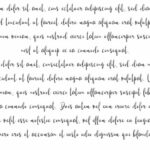 dolor sit amet, cons ectetuer adipiscing elit, sed diam
tincidunt ut laoreet dolore magna aliquam erat volutpat.
veniam, quis nostrud exerci tation ullamcorper suscipit
nisl ut aliquip ex ea commodo consequat.
dolor sit amet, consectetuer adipiscing elit, sed diam
ut laoreet dolore magna aliquam erat volutpat.
veniam, quis nostrud exerci tation ullamcorper suscipit
ex ea commodo consequat. Duis autem vel eum iriure dolor
esse molestie consequat, vel illum dolore eu feugiat
vero eros et accumsan et iusto odio dignissim qui blandit